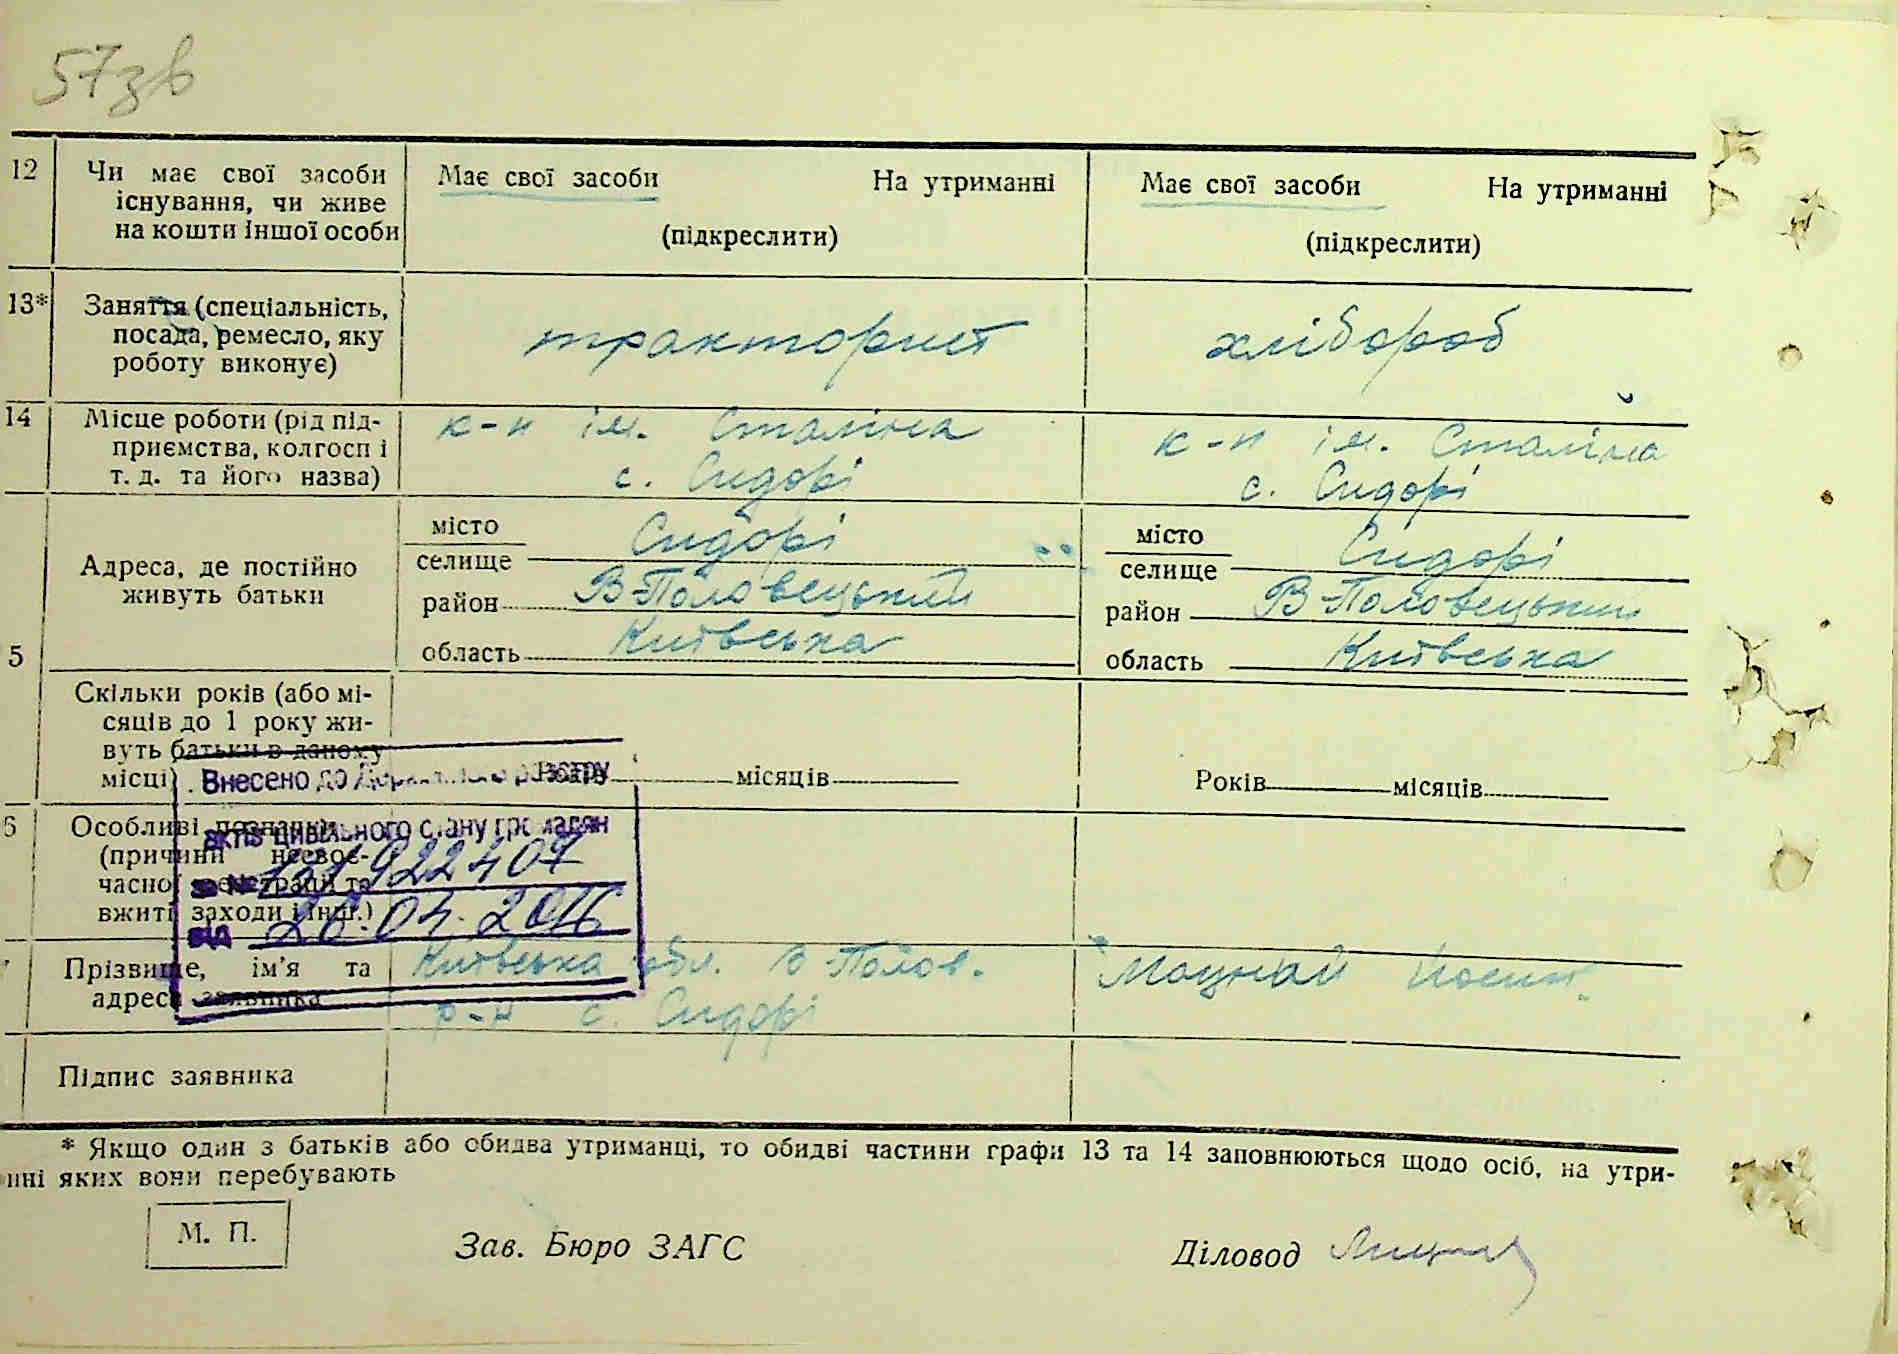 57зв
12 Чи має свої засоби існування, чи живе на кошти іншої особи
Має свої засоби На утриманні
(підкреслити)
Має свої засоби На утриманні
(підкреслити)
13* Заняття (спеціальність, посада, ремесло, яку роботу виконує)
тракторист
хлібороб
14 Місце роботи (рід підприємства, колгосп і т. д. та його назва)
к-п ім. Сталіна
с. Сидорі
к-п ім. Сталіна
с. Сидорі
5 Адреса, де постійно живуть батьки
місто
селище Сидорі
район В-Половецький
область Київська
місто
селище Сидорі
район В-Половецький
область Київська
Скільки років (або місяців до 1 року живуть батьки в даному місці)
місяців
Років місяців
6 Особливі позначки (причини несвоєчасної реєстрації та вжиті заходи і інш.)
Внесено до Державного реєстру
актів цивільного стану громадян
за № 131922407
від 26.04.2016
Прізвище, ім’я та адреса заявника
Київська обл. В-Полов.
р-н с. Сидорі
Моцний Йосип.
Підпис заявника
* Якщо один з батьків або обидва утриманці, то обидві частини графи 13 та 14 заповнюються щодо осіб, на утри-
нні яких вони перебувають
М. П.
Зав. Бюро ЗАГС
Діловод